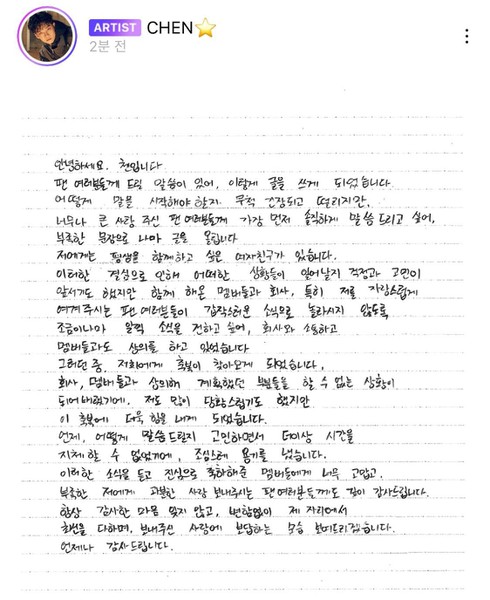 ARTIST CHEN
2분 전
안녕하세요. 첸입니다
팬 여러분들께 드릴 말씀이 있어, 이렇게 글을 쓰게 되었습니다.
어떻게 말을 시작해야 할지 무척 긴장되고 떨리지만,
너무나 큰 사랑 주신 팬 여러분들께 가장 먼저 솔직하게 말씀드리고 싶어,
부족한 문장으로 나마 글을 올립니다
저에게는 평생을 함께하고 싶은 여자친구가 있습니다.
이러한 결심으로 인해 어떠한 상황들이 일어날지 걱정과 고민이
앞서기도 했지만 함께 해온 멤버들과 회사, 특히 저를 자랑스럽게
여겨주시는 팬 여러분들이 갑작스러운 소식으로 놀라시지 않도록
조금이나마 일찍 소식을 전하고 싶어, 회사와 소통하고
멤버들과도 상의를 하고 있었습니다
그러던 중, 저희에게 축복이 찾아오게 되었습니다,
회사, 멤버들과 상의해 계획했던 부분들을 할 수 없는 상황이
되어버렸기에. 저도 많이 당황스럽기도 했지만
이 축복에 더욱 힘을 내게 되었습니다.
언제, 어떻게 말씀드릴지 고민하면서 더이상 시간을
지체할 수 없었기에, 조심스레 용기를 냈습니다.
이러한 소식을 듣고 진심으로 축하해준 멤버들에게 너무 고맙고,
부족한 저에게 과분한 사랑 보내주시는 팬 여러분들께도 깊이 감사드립니다.
항상 감사한 마음 잊지 않고, 변함없이 제 자리에서
최선을 다하며, 보내주신 사랑에 보답하는 모습 보여드리겠습니다.
언제나 감사드립니다.